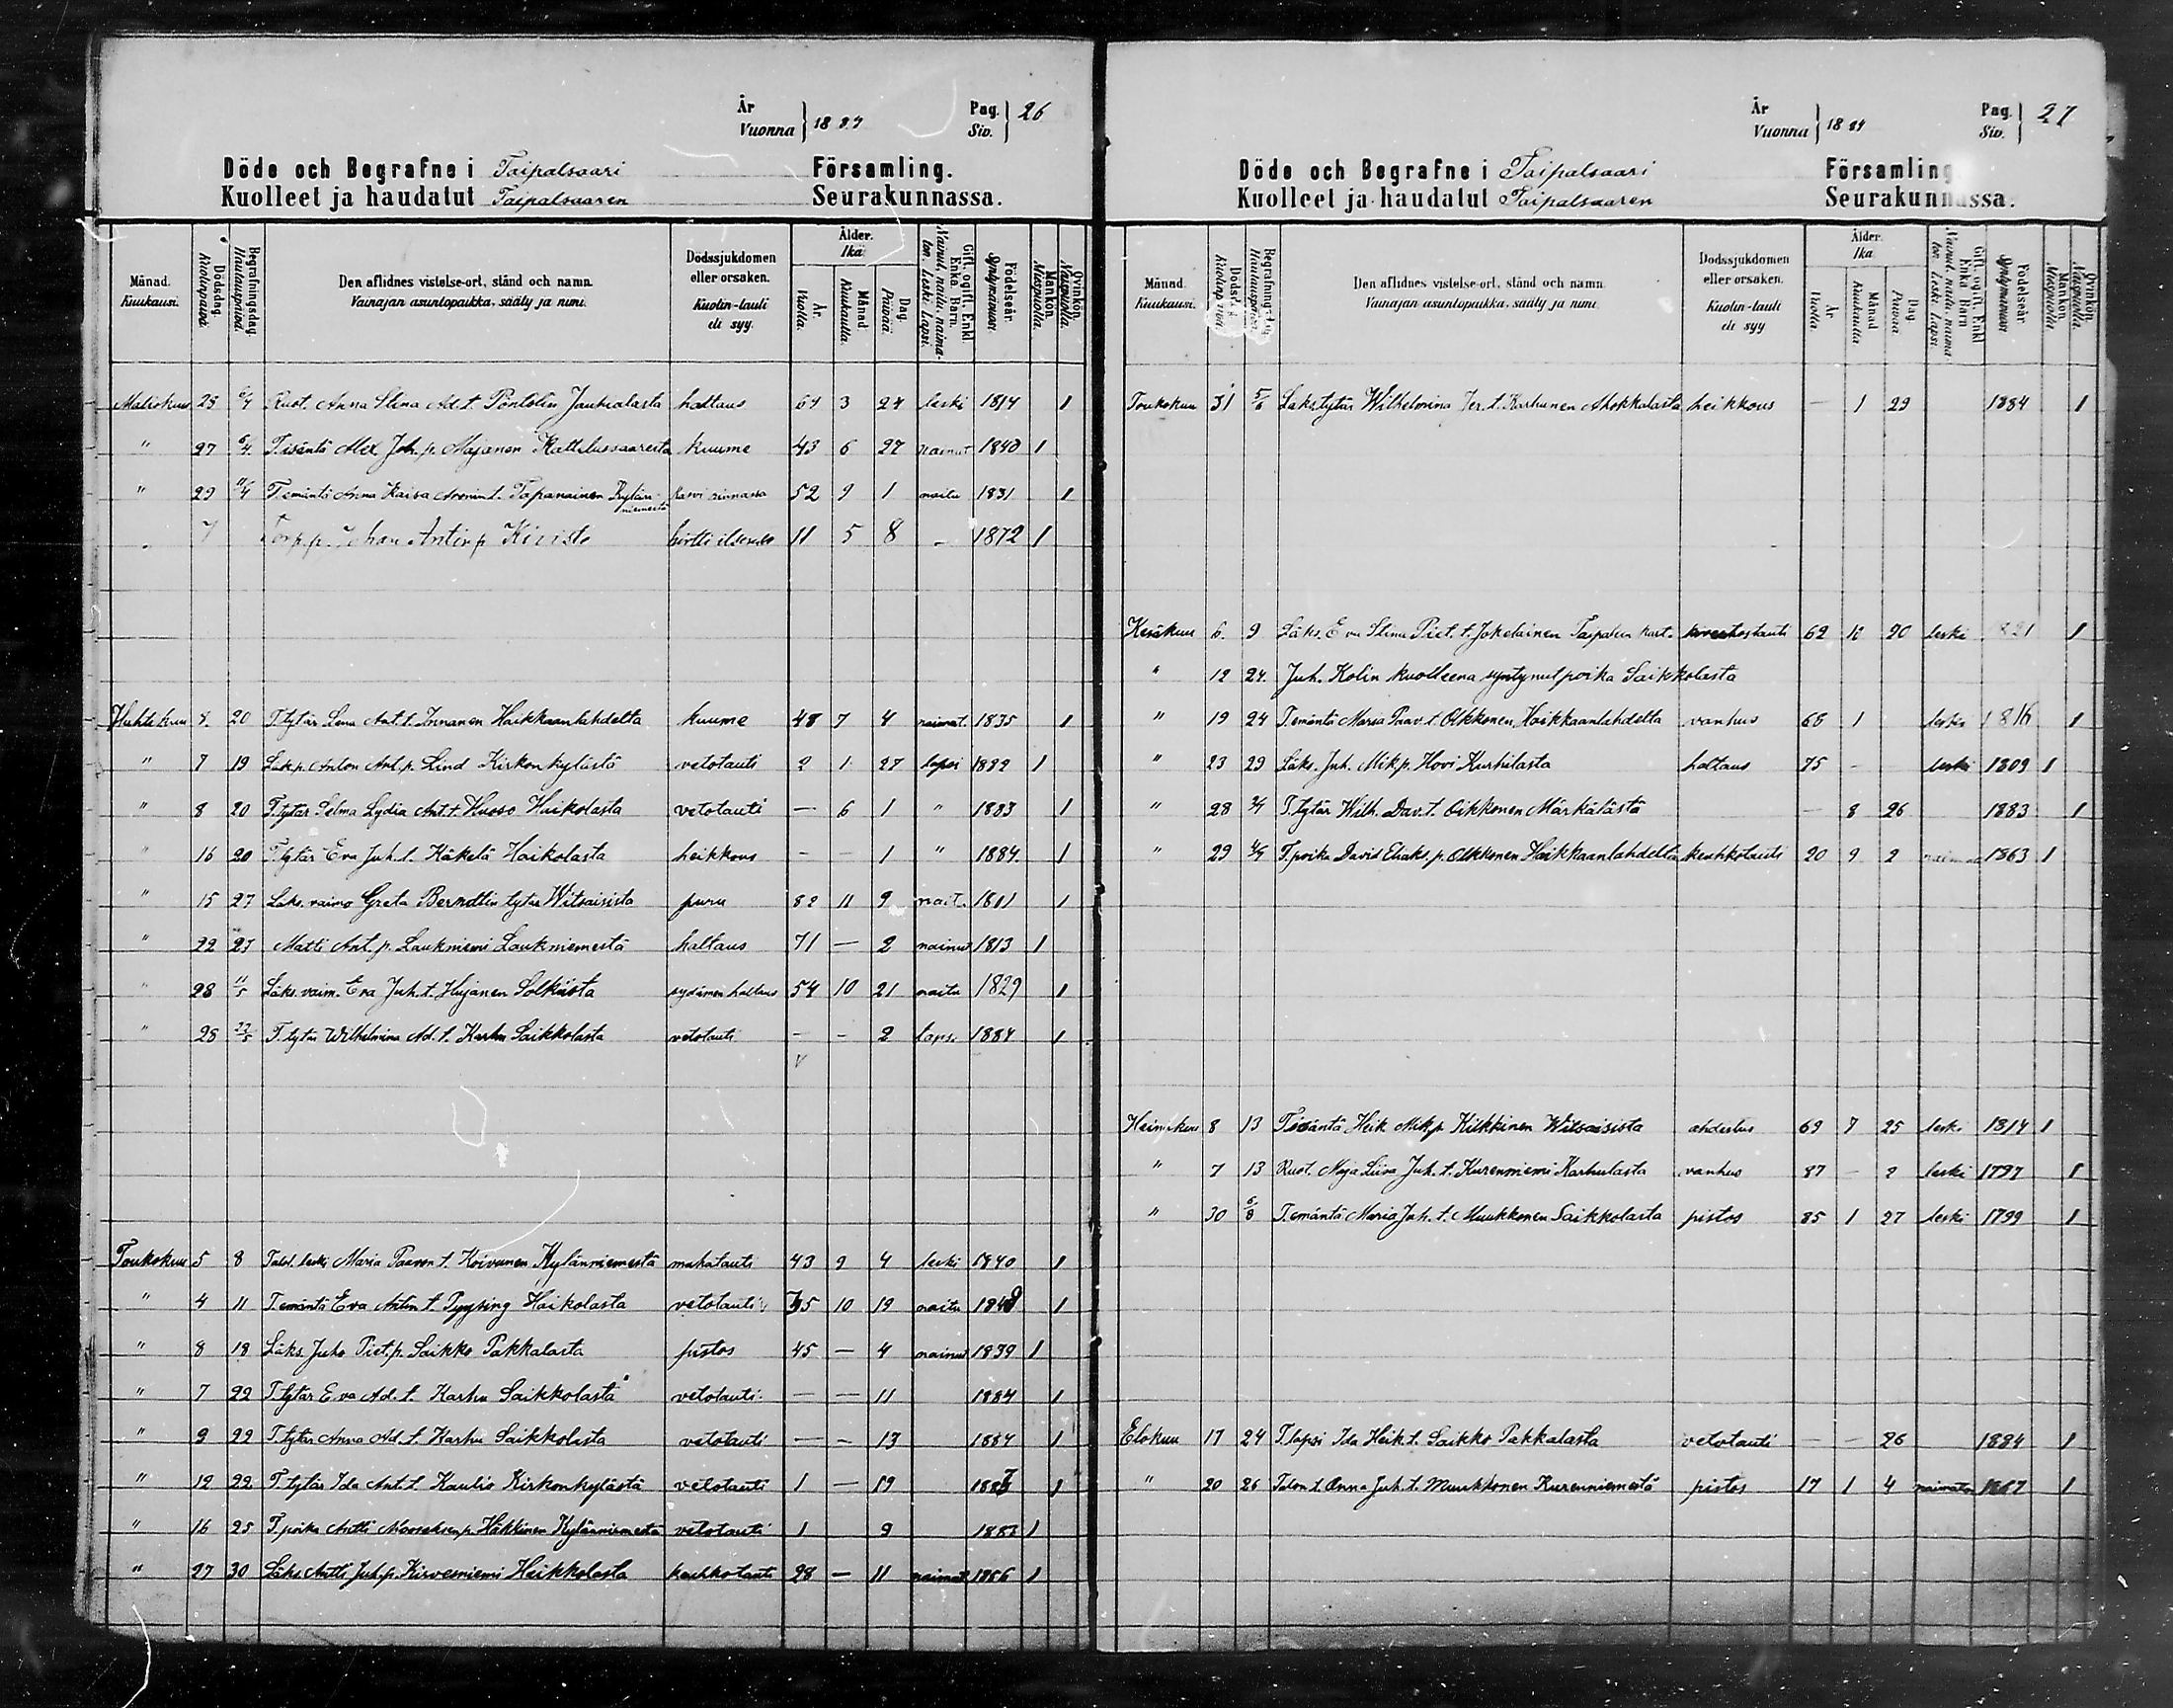 År
Vuonna 1884
Pag.
Siv. 26
Döde och Begrafne i Taipalsaari Församling.
Kuolleet ja haudatut Taipalsaaren Seurakunnassa.
Månad. Kuukausi.
Dödsdag. Kuolinpäivä.
Begrafningsdag. Hautauspäivä.
Den aflidnes vistelse-ort, stånd och namn.
Vainajan asuntopaikka, sääty ja nimi.
Dödssjukdomen eller orsaken.
Kuolin-tauti eli syy.
Ålder. Ikä.
År. Vuotta.
Månad. Kuukautta.
Dag. Päivää.
Gift, ogift, Enkl. Enka, Barn.
Nainut, naitu, naimaton. Leski. Lapsi.
Födelseår. Syntymävuosi.
Mankön. Miespuolia.
Qvinkön. Naispuolia.
25 6/4 Ruot. Anna Stina Ad. t. Pöntelin Jauhialasta haltaus 64 3 24 leski 1814 1
" 27 6/4 T. isäntä Alex Joh. p. Majanen Kattelussaaresta kuume 43 6 27 nainut 1840 1
" 29 11/4 T. emäntä Anna Kaisa t. Tapanainen Kylän-
niemestä rinnassa 52 9 1 naitu 1831 1
" 7 Torp. p. Johan Antin p. Kivisto 11 5 8 – 1872 1
Huhtikuu 4. 20 T. tytär Lena Ant. t. Innanen Haikkaanlahdelta kuume 48 7 4 naimat. 1835 1
" 7 19 Läk. p. Anton Ant. p. Lind Kirkonkylästä vetotauti 2 1 27 lapsi 1882 1
" 8 20 T. tytär Selma Lydia Ant. t. Kuoso Huikolasta vetotauti — 6 1 " 1883 1
" 16 20 T. tytär Eva Juh. t. Käkelä Haikolasta heikkous – – 1 " 1884 1
" 15 27 Läks. vaimo Greta Berndtin tytär Witsaisista puru 82 11 9 nait. 1801 1
" 22 27 Matti Ant. p. Laukniemi Laukniemestä haltaus 71 — 2 nainut 1813 1
" 28 11/5 Läks. vaim. Eva Juh. t. Hujanen Solkiista sydämen haltaus 54 10 21 naitu 1829 1
" 28 22/5 T. tytär Wilhelmina Ad. t. Karhu Saikkolasta vetotauti – – 2 lapsi 1884 1
Toukokuu 5 8 Talol. leski Maria Paavon t. Koivunen Kylänniemestä mahatauti 43 9 4 leski 1840 1
" 4 11 T. emäntä Eva Antin t. Pyysing Haikolasta vetotauti 35 10 19 naitu 1848 1
" 8 18 Läks. Juho Piet. p. Saikko Pakkalasta pistos 45 — 4 nainut 1839 1
" 7 22 T. tytär Eva Ad. t. Karhu Saikkolasta vetotauti — — 11 1884 1
" 9 22 T. tytär Anna Ad. t. Karhu Saikkolasta vetotauti — – 13 1884 1
" 12 22 T. tytär Ida Ant. t. Kaulio Kirkonkylästä vetotauti 1 — 19 1883 1
" 16 25 T. poika Antti p. Häkkinen Kylänniemestä vetotauti 1 9 1883 1
" 27 30 Läks. Antti Juh. p. Kirvesniemi Heikkolasta keuhkotauti 28 — 11 naimat 1856 1
År
Vuonna 1884
Pag.
Siv. 27
Döde och Begrafne i Taipalsaari Församling
Kuolleet ja haudatut Taipalsaaren Seurakunnassa.
Månad. Kuukausi.
Begrafningsdag. Hautauspäivä.
Den aflidnes vistelse-ort, stånd och namn.
Vainajan asuntopaikka, sääty ja nimi
Dödssjukdomen eller orsaken.
Kuolin-tauti eli syy
Ålder. Ikä
År Vuotta.
Månad Kuukautta
Dag. Päivää
Gift, ogift, Enkl Enka Barn
Nainut, naitu, naimaton. Leski. Lapsi.
Födelseår. Syntymävuosi
Mankön. Miespuolia.
Qvinkön. Naispuolia.
Toukokuu 31 5/6 Läks. tytär Wilhelmina Jer. t. Karhunen Ahokkalasta heikkous — 1 29 1884 1
Kesäkuu 6. 9 Läks. Eva Stina Piet. t. Jokelainen Taipaleen kart. 62 10 20 leski 1821 1
" 12 24. Juh. Kolin kuolleena syntynyt poika Saikkolasta
" 19 24 T. emäntä Maria Paav. t. Olkkonen Haikkaanlahdella vanhus 68 1 leski 1816 1
" 23 29 Läks. Juh. Mik. p. Hovi Kurhilasta haltaus 75 – leski 1809 1
" 28 T. tytär Wilh. Dav. t. Oikkonen Märkälästä — 8 26 1883 1
" 29 T. poika David Eliaks. p. Olkkonen Haikkaanlahdelta keuhkotauti 20 9 2 1863 1
Heinäkuu 8 13 T. isäntä Heik Mik. p. Kilkkinen Witsaisista ahdistus 69 7 25 leski 1814 1
" 7 13 Ruot. Maja Liisa Juh. t. Kurenniemi Karhulasta vanhus 87 – 2 leski 1797 1
" 30 6/8 T. emäntä Maria Juh. t. Muukkonen Saikkolasta pistos 85 1 27 leski 1799 1
Elokuu 17 24 T. lapsi Ida Heik. t. Saikko Pakkalasta vetotauti – – 26 1884 1
" 20 26 Talon t. Anna Juh. t. Muukkonen Kurenniemestä pistos 17 1 4 naimaton 1867 1